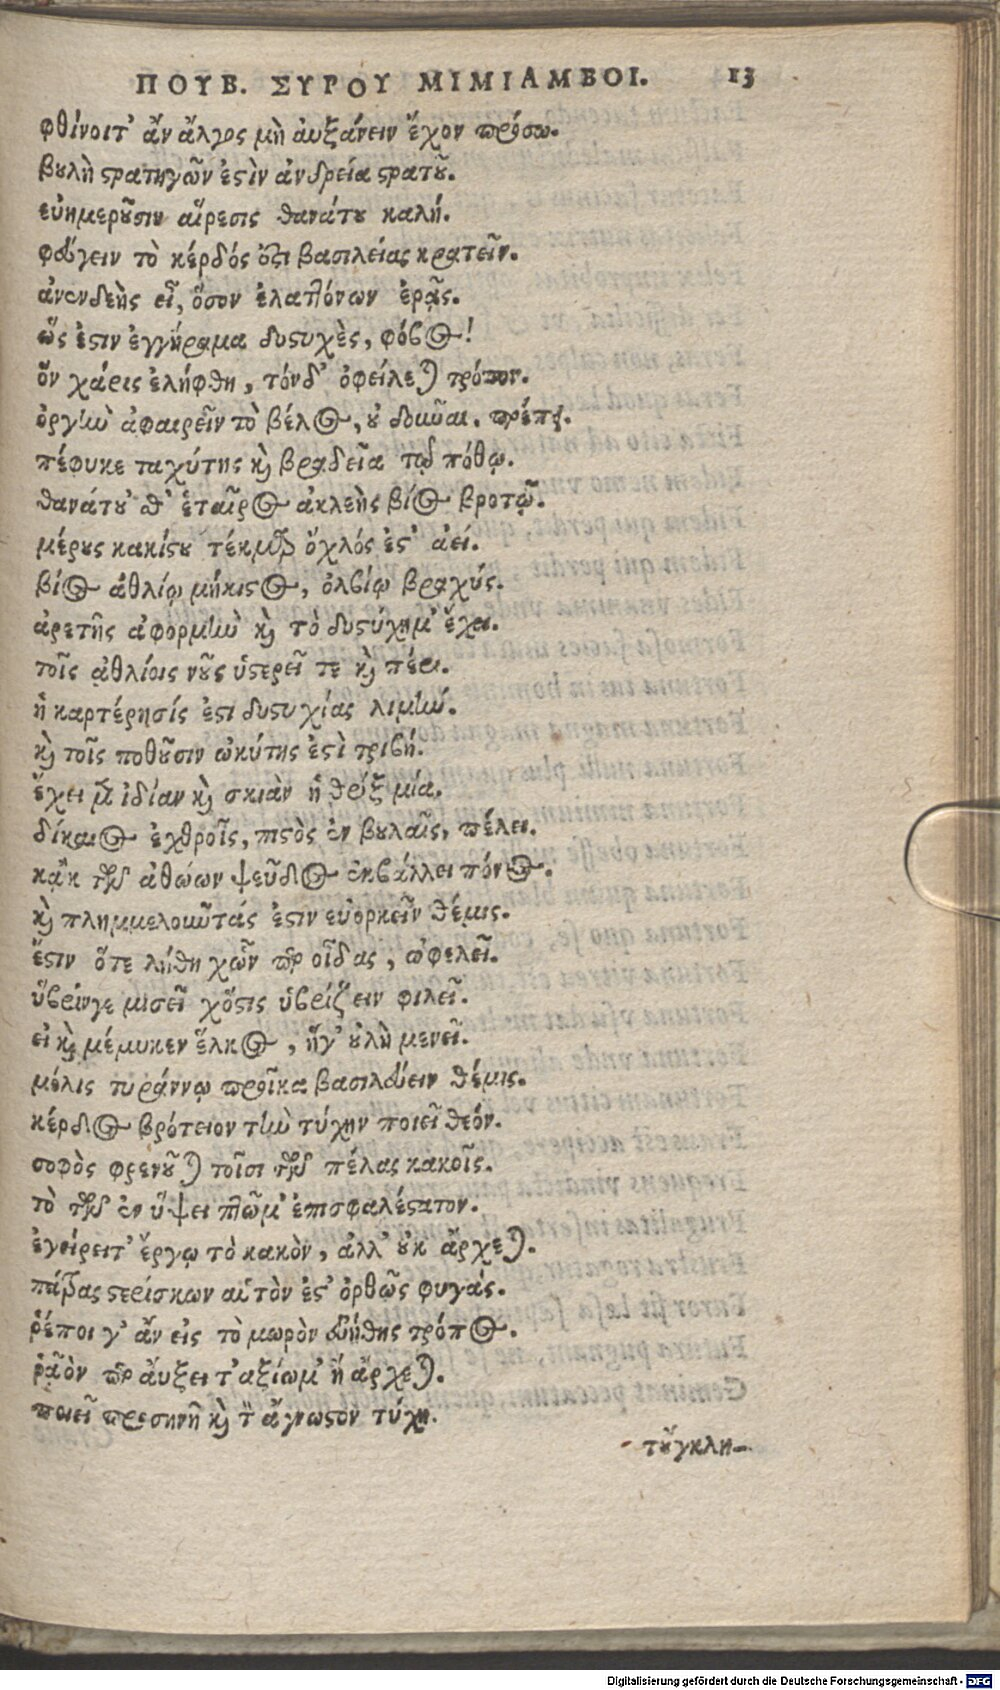 ΠΟΥΒ. ΣΥΡΟΥ ΜΙΜΙΑΜΒΟΙ. 13
φθίνοιτ' ἂν ἄλγος μὴ ἀυξάνειν ἔχον πρόσω.
βουλὴ στρατηγῶν ἐστὶν ἀνδρεία στρατοῦ.
εὐημεροῦσιν αἵρεσις θανάτου καλή.
φεύγειν τὸ κέρδός ἐστι βασιλείας κρατεῖν.
ἀνενδεὴς εἶ, ὅσον ἐλαττόνων ἐρᾷς.
ὥς ἐστιν ἐγγήραμα δυστυχὲς, φόβος!
ὃν χάρις ἐλήφθη, τόνδ' ὀφείλεται τρόπον.
ὀργὴν ἀφαιρεῖν τὸ βέλος, οὐ δοῦναι. πρέπει.
πέφυκε ταχύτης καὶ βραδεῖα τῷ πόθῳ.
θανάτου θ' ἑταῖρος ἀκλεὴς βίος βροτῷ.
μέρους κακίστου τέκμαρ ὄχλός ἐστ' ἀεί.
βίος ἀθλίῳ μήκιστος, ὀλβίῳ βραχύς.
ἀρετῆς ἀφορμὴν καὶ τὸ δυστύχημ' ἔχει.
τοῖς ἀθλίοις νοῦς ὑστερεῖ τε καὶ πέλει.
ἡ καρτέρησίς ἐστι δυστυχίας λιμήν.
καὶ τοῖς ποθοῦσιν ὠκύτης ἐστὶ τριβή.
ἔχει μὲν ἰδίαν καὶ σκιὰν ἡ θρὶξ μία.
δίκαιος ἐχθροῖς, πιστὸς ἐν βουλαῖς, πέλει.
κἀκ τῶν ἀθώων ψεῦδος ἐκβάλλει πόνος.
καὶ πλημμελοῦντάς ἐστιν εὐορκεῖν θέμις.
ἔστιν ὅτε λήθη χὧν περ οἶδας, ὠφελεῖ.
ὕβριν γε μισεῖ χὅστις ὑβρίζειν φιλεῖ.
εἰ καὶ μέμυκεν ἕλκος, ἥγ' οὐλὴ μενεῖ.
μόλις τυράννῳ προῖκα βασιλεύειν θέμις.
κέρδος βρότειον τὴν τύχην ποιεῖ θεόν.
σοφὸς φρενοῦται τοῖσι τῶν πέλας κακοῖς.
τὸ τῶν ἐν ὕψει πτῶμ' ἐπισφαλέστατον.
ἐγείρειτ' ἔργῳ τὸ κακὸν, ἀλλ' οὐκ ἄρχεται.
πάντας στερίσκων αὑτὸν ἐστ' ὀρθῶς φυγάς.
ῥέποι γ' ἂν εἰς τὸ μωρὸν εὐήθης τρόπος.
ῥᾷον περ ἄυξει τ' ἀξίωμ' ἢ ἄρχεται.
ποιεῖ προσηνῆ καὶ τὸν ἄγνωστον τύχη.
τοὔγκλη-
Digitalisierung gefördert durch die Deutsche Forschungsgemeinschaft - DFG